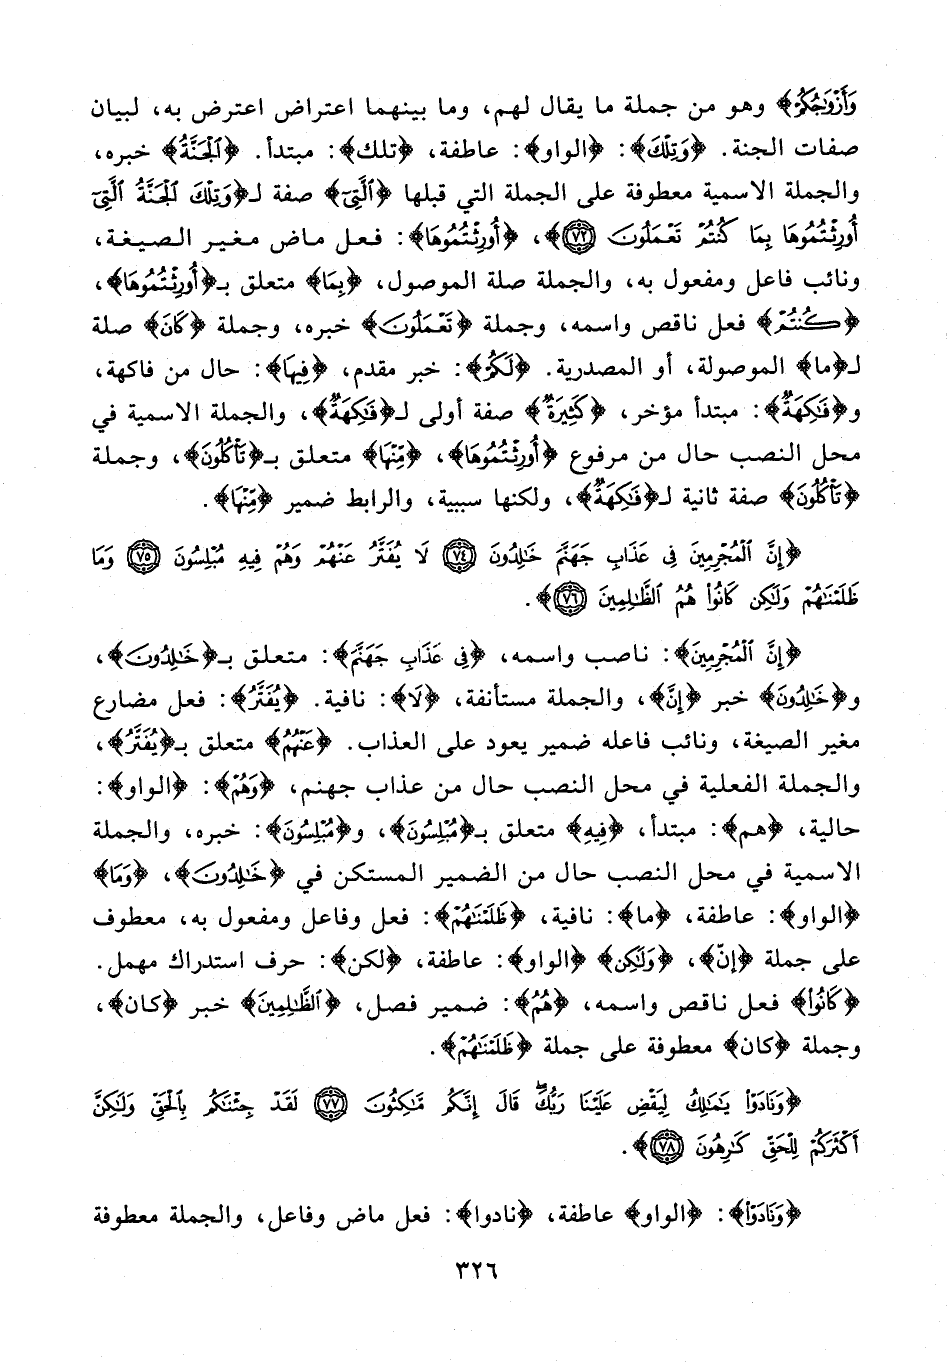 وَأَزْوَٰجُكُمْ﴾ وهو من جملة ما يقال لهم، وما بينهما اعتراض اعترض به، لبيان
صفات الجنة. ﴿وَتِلْكَ﴾: ﴿الواو﴾: عاطفة، ﴿تلك﴾: مبتدأ. ﴿ٱلْجَنَّةُ﴾ خبره،
والجملة الاسمية معطوفة على الجملة التي قبلها ﴿ٱلَّتِىٓ﴾ صفة لـ﴿وَتِلْكَ ٱلْجَنَّةُ ٱلَّتِىٓ
أُورِثْتُمُوهَا بِمَا كُنتُمْ تَعْمَلُونَ ٧٢﴾، ﴿أُورِثْتُمُوهَا﴾: فعل ماض مغير الصيغة،
ونائب فاعل ومفعول به، والجملة صلة الموصول، ﴿بِمَا﴾ متعلق بـ﴿أُورِثْتُمُوهَا﴾،
﴿كُنتُمْ﴾ فعل ناقص واسمه، وجملة ﴿تَعْمَلُونَ﴾ خبره، وجملة ﴿كَانَ﴾ صلة
لـ﴿ما﴾ الموصولة، أو المصدرية. ﴿لَكُمْ﴾: خبر مقدم، ﴿فِيهَا﴾: حال من فاكهة،
و﴿فَٰكِهَةٌ﴾: مبتدأ مؤخر، ﴿كَثِيرَةٌ﴾ صفة أولى لـ﴿فَٰكِهَةٌ﴾، والجملة الاسمية في
محل النصب حال من مرفوع ﴿أُورِثْتُمُوهَا﴾، ﴿مِّنْهَا﴾ متعلق بـ﴿تَأْكُلُونَ﴾، وجملة
﴿تَأْكُلُونَ﴾ صفة ثانية لـ﴿فَٰكِهَةٌ﴾، ولكنها سببية، والرابط ضمير ﴿مِّنْهَا﴾.
﴿إِنَّ ٱلْمُجْرِمِينَ فِى عَذَابِ جَهَنَّمَ خَٰلِدُونَ ٧٤ لَا يُفَتَّرُ عَنْهُمْ وَهُمْ فِيهِ مُبْلِسُونَ ٧٥ وَمَا
ظَلَمْنَٰهُمْ وَلَٰكِن كَانُوا۟ هُمُ ٱلظَّٰلِمِينَ ٧٦﴾.
﴿إِنَّ ٱلْمُجْرِمِينَ﴾: ناصب واسمه، ﴿فِى عَذَابِ جَهَنَّمَ﴾: متعلق بـ﴿خَٰلِدُونَ﴾،
و﴿خَٰلِدُونَ﴾ خبر ﴿إِنَّ﴾، والجملة مستأنفة، ﴿لَا﴾: نافية. ﴿يُفَتَّرُ﴾: فعل مضارع
مغير الصيغة، ونائب فاعله ضمير يعود على العذاب. ﴿عَنْهُمْ﴾ متعلق بـ﴿يُفَتَّرُ﴾،
والجملة الفعلية في محل النصب حال من عذاب جهنم، ﴿وَهُمْ﴾: ﴿الواو﴾:
حالية، ﴿هم﴾: مبتدأ، ﴿فِيهِ﴾ متعلق بـ﴿مُبْلِسُونَ﴾، و﴿مُبْلِسُونَ﴾: خبره، والجملة
الاسمية في محل النصب حال من الضمير المستكن في ﴿خَٰلِدُونَ﴾، ﴿وَمَا﴾
﴿الواو﴾: عاطفة، ﴿ما﴾: نافية، ﴿ظَلَمْنَٰهُمْ﴾: فعل وفاعل ومفعول به، معطوف
على جملة ﴿إنّ﴾، ﴿وَلَٰكِن﴾ ﴿الواو﴾: عاطفة، ﴿لكن﴾: حرف استدراك مهمل.
﴿كَانُوا۟﴾ فعل ناقص واسمه، ﴿هُمُ﴾: ضمير فصل، ﴿ٱلظَّٰلِمِينَ﴾ خبر ﴿كان﴾،
وجملة ﴿كان﴾ معطوفة على جملة ﴿ظَلَمْنَٰهُمْ﴾.
﴿وَنَادَوْا۟ يَٰمَٰلِكُ لِيَقْضِ عَلَيْنَا رَبُّكَ ۖ قَالَ إِنَّكُم مَّٰكِثُونَ ٧٧ لَقَدْ جِئْنَٰكُم بِٱلْحَقِّ وَلَٰكِنَّ
أَكْثَرَكُمْ لِلْحَقِّ كَٰرِهُونَ ٧٨﴾.
﴿وَنَادَوْا۟﴾: ﴿الواو﴾ عاطفة، ﴿نادوا﴾: فعل ماض وفاعل، والجملة معطوفة
٣٢٦